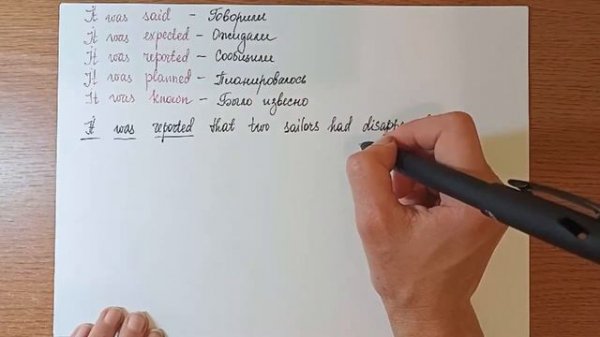 It was said - Говорили
It was expected - Ожидали
It was reported - Сообщили
It was planned - Планировалось
It was known - Было извесно
It was reported that two sailors had